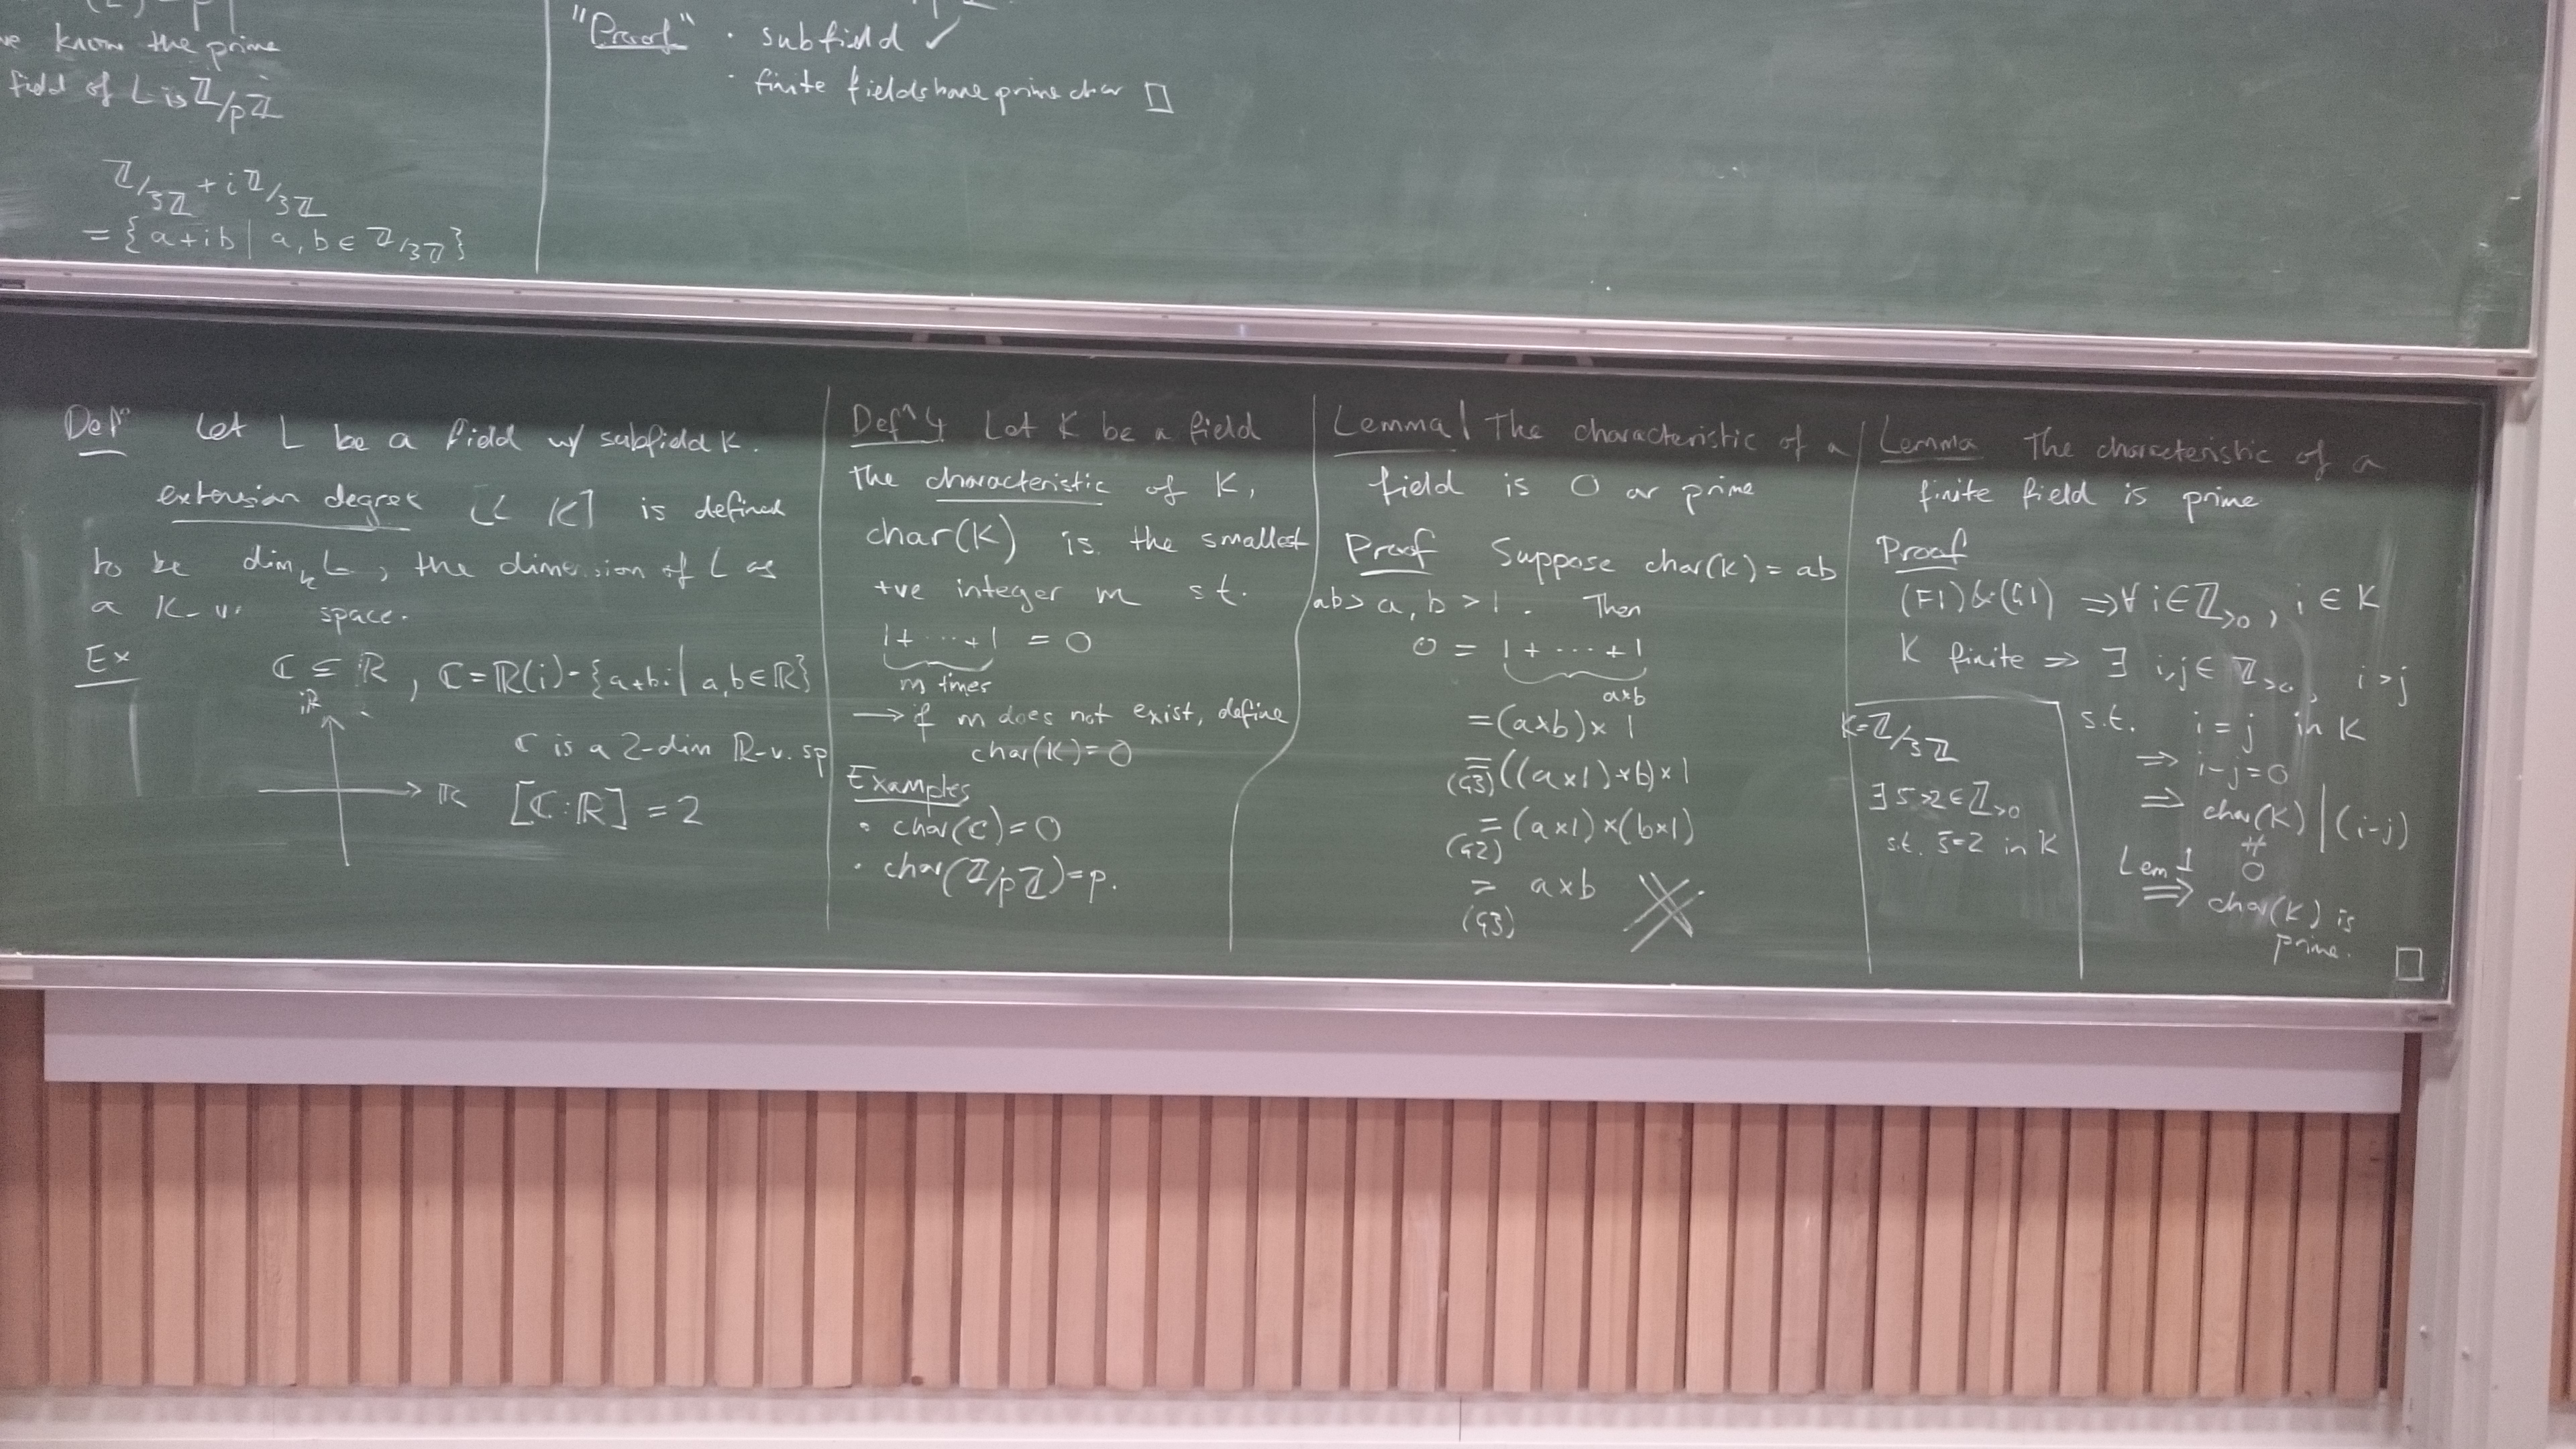 know the prime
field of L is ℤ/pℤ
ℤ/3ℤ + iℤ/3ℤ
= {a+ib | a, b ∈ ℤ/3ℤ}
"Proof" · subfield ✓
· finite fields have prime char □
Defⁿ Let L be a field w/ subfield K.
extension degree [L K] is defined
to be dim_K L, the dimension of L as
a K-v. space.
Ex ℂ ⊆ ℝ, ℂ = ℝ(i) = {a+bi | a, b ∈ ℝ}
iℝ
ℂ is a 2-dim ℝ-v. sp
ℝ
[ℂ:ℝ] = 2
Defⁿ 4 Let K be a field
The characteristic of K,
char(K) is the smallest
+ve integer m s.t.
1 + ··· + 1 = 0
m times
→ if m does not exist, define
char(K) = 0
Examples
· char(ℂ) = 0
· char(ℤ/pℤ) = p.
Lemma 1 The characteristic of a
field is 0 or prime
Proof Suppose char(K) = ab
ab > a, b > 1. Then
0 = 1 + ··· + 1
a×b
= (a×b) × 1
= ((a×1)×b)×1
(G3)
= (a×1)×(b×1)
(G2)
= a×b
(G3)
Lemma The characteristic of a
finite field is prime
Proof
(F1)&(G1) ⇒ ∀ i ∈ ℤ>0, i ∈ K
K finite ⇒ ∃ i, j ∈ ℤ>0, i > j
s.t. i = j in K
⇒ i-j = 0
⇒ char(K) | (i-j)
≠
0
Lem 1
⇒ char(K) is
prime. □
K = ℤ/3ℤ
∃ 5 > 2 ∈ ℤ>0
s.t. 5 = 2 in K